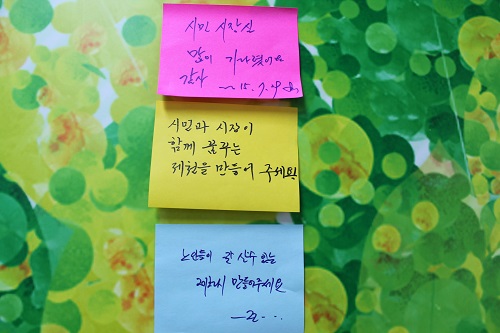 시민 시장실
많이 기다렸어요
감사 ~ 15. 7. 9
시민과 시장이
함께 꿈꾸는
제천을 만들어 주세요
노인들이 잘 살수 있는
제천시 만들어주세요